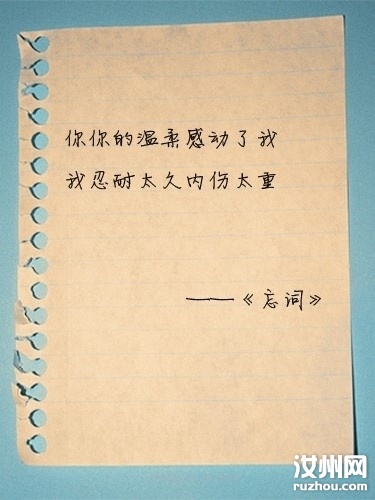 你你的温柔感动了我
我忍耐太久内伤太重
——《忘词》
汝州网
ruzhou.com